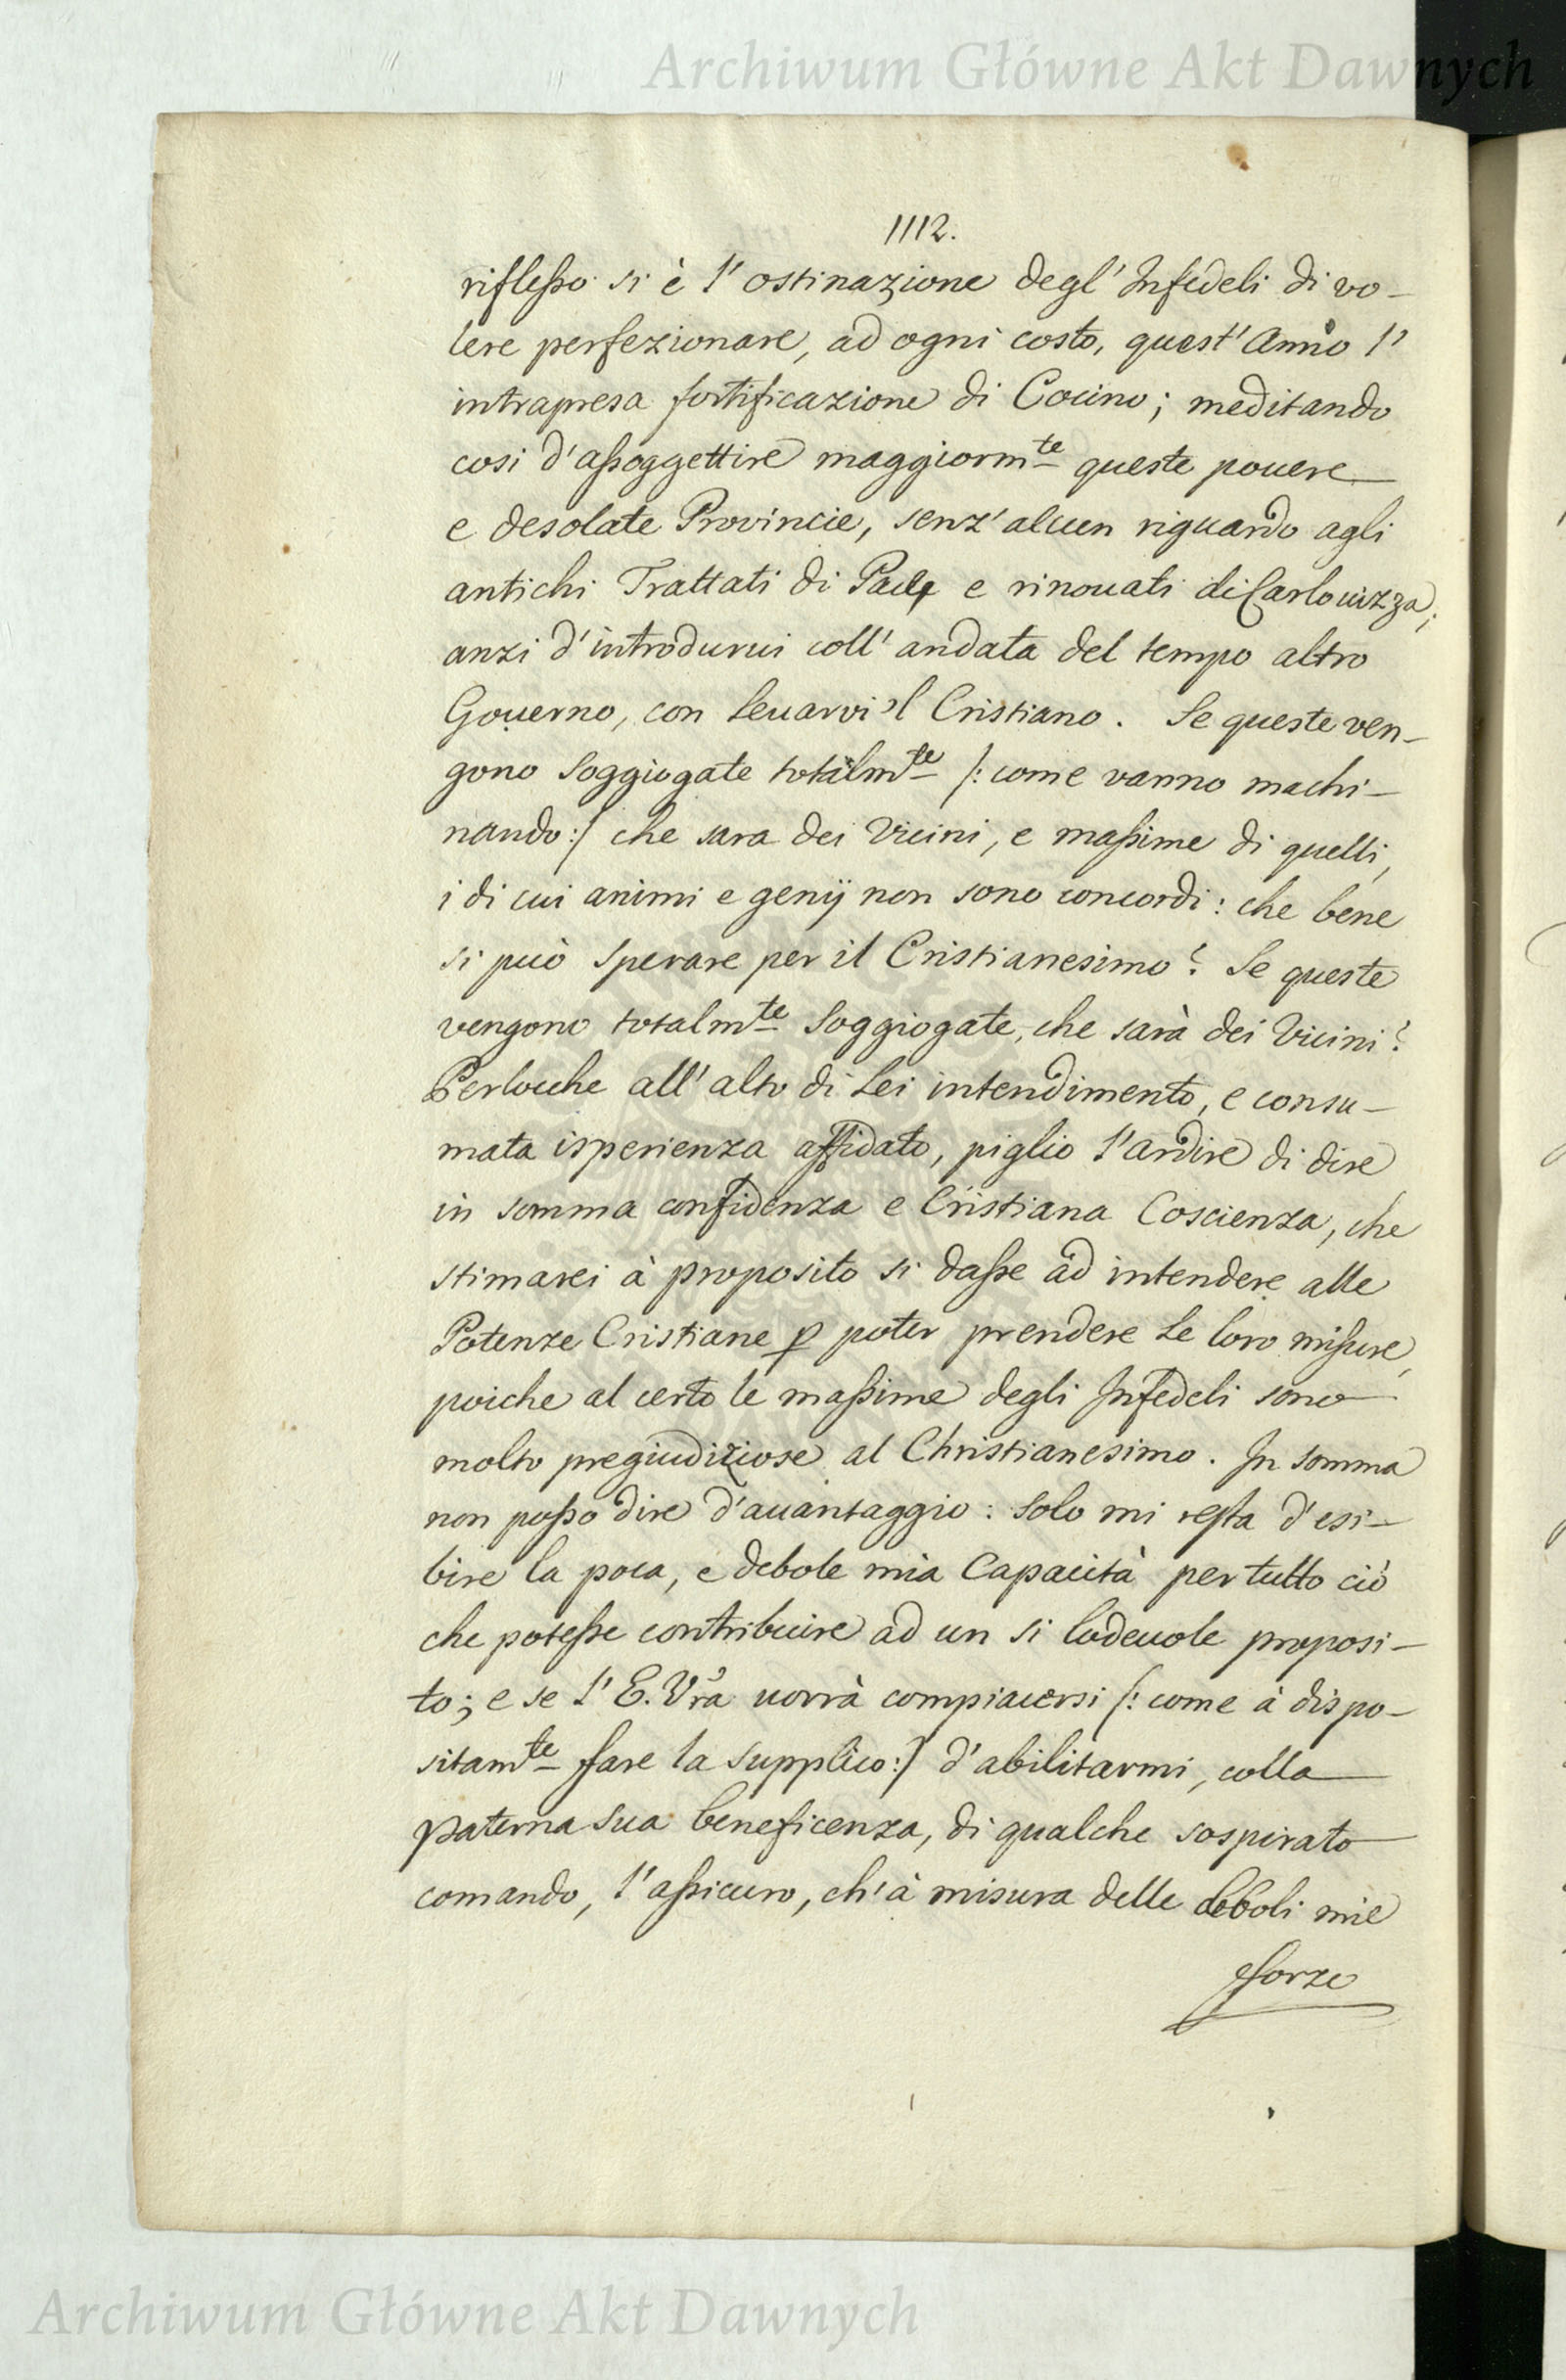 Archiwum Główne Akt Dawnych
1112.
riflesso si è l' ostinazione degl' Infedeli di vo-
lere perfezionare, ad ogni costo, quest' Anno l'
intrapresa fortificazione di Cocino; meditando
cosi d'assoggettire maggiormte queste pouere
e desolate Provincie, senz' alcun riguardo agli
antichi Trattati di Pace e rinouati di Carlouizza;
anzi d'introdurui coll' andata del tempo altro
Gouerno, con leuarvi 'l Cristiano. Se queste ven-
gono soggiogate totalmte /: come vanno machi-
nando :/ che sara dei Vicini, e massime di quelli,
i di cui animi e genij non sono concordi: che bene
si può sperare per il Cristianesimo? Se queste
vengono totalmte soggiogate, che sarà dei Vicini?
Perloche all' alto di Lei intendimento, e consu-
mata isperienza affidato, piglio l'ardire di dire
in somma confidenza e Cristiana Coscienza, che
stimarei à proposito si dasse ad intendere alle
Potenze Cristiane p poter prendere le loro misure,
poiche al certo le massime degli Infedeli sono
molto pregiudiziose al Christianesimo. In somma
non posso dire d'auantaggio: solo mi resta d'esi-
bire la poca, e debole mia Capacità per tutto ciò
che potesse contribuire ad un si lodeuole proposi-
to; e se l' E. Vra uorrà compiacersi /: come à dispo-
sitamte fare la supplico :/ d'abilitarmi, colla
paterna sua beneficenza, di qualche sospirato
comando, l'assicuro, ch' à misura delle deboli mie
forze
Archiwum Główne Akt Dawnych